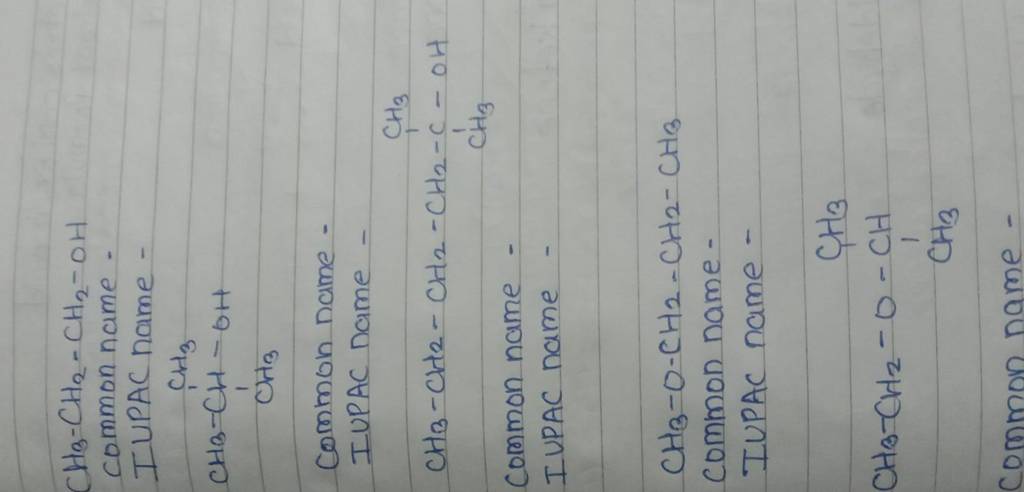 CH3-CH2-CH2-OH
Common name -
IUPAC name -
CH3
CH3-CH-OH
CH3
Common name -
IUPAC name -
CH3
CH3-CH2-CH2-CH2-CH2-C-OH
CH3
Common name -
IUPAC name -
CH3-O-CH2-CH2-CH3
Common name -
IUPAC name -
CH3
CH3-CH2-O-CH
CH3
Common name -